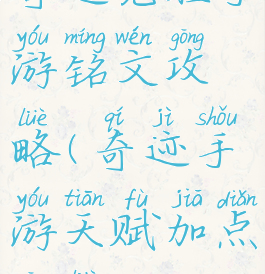 yóu míng wén gōng
游铭文攻
lüè qí jì shǒu
略(奇迹手
yóu tiān fù jiā diǎn
游天赋加点